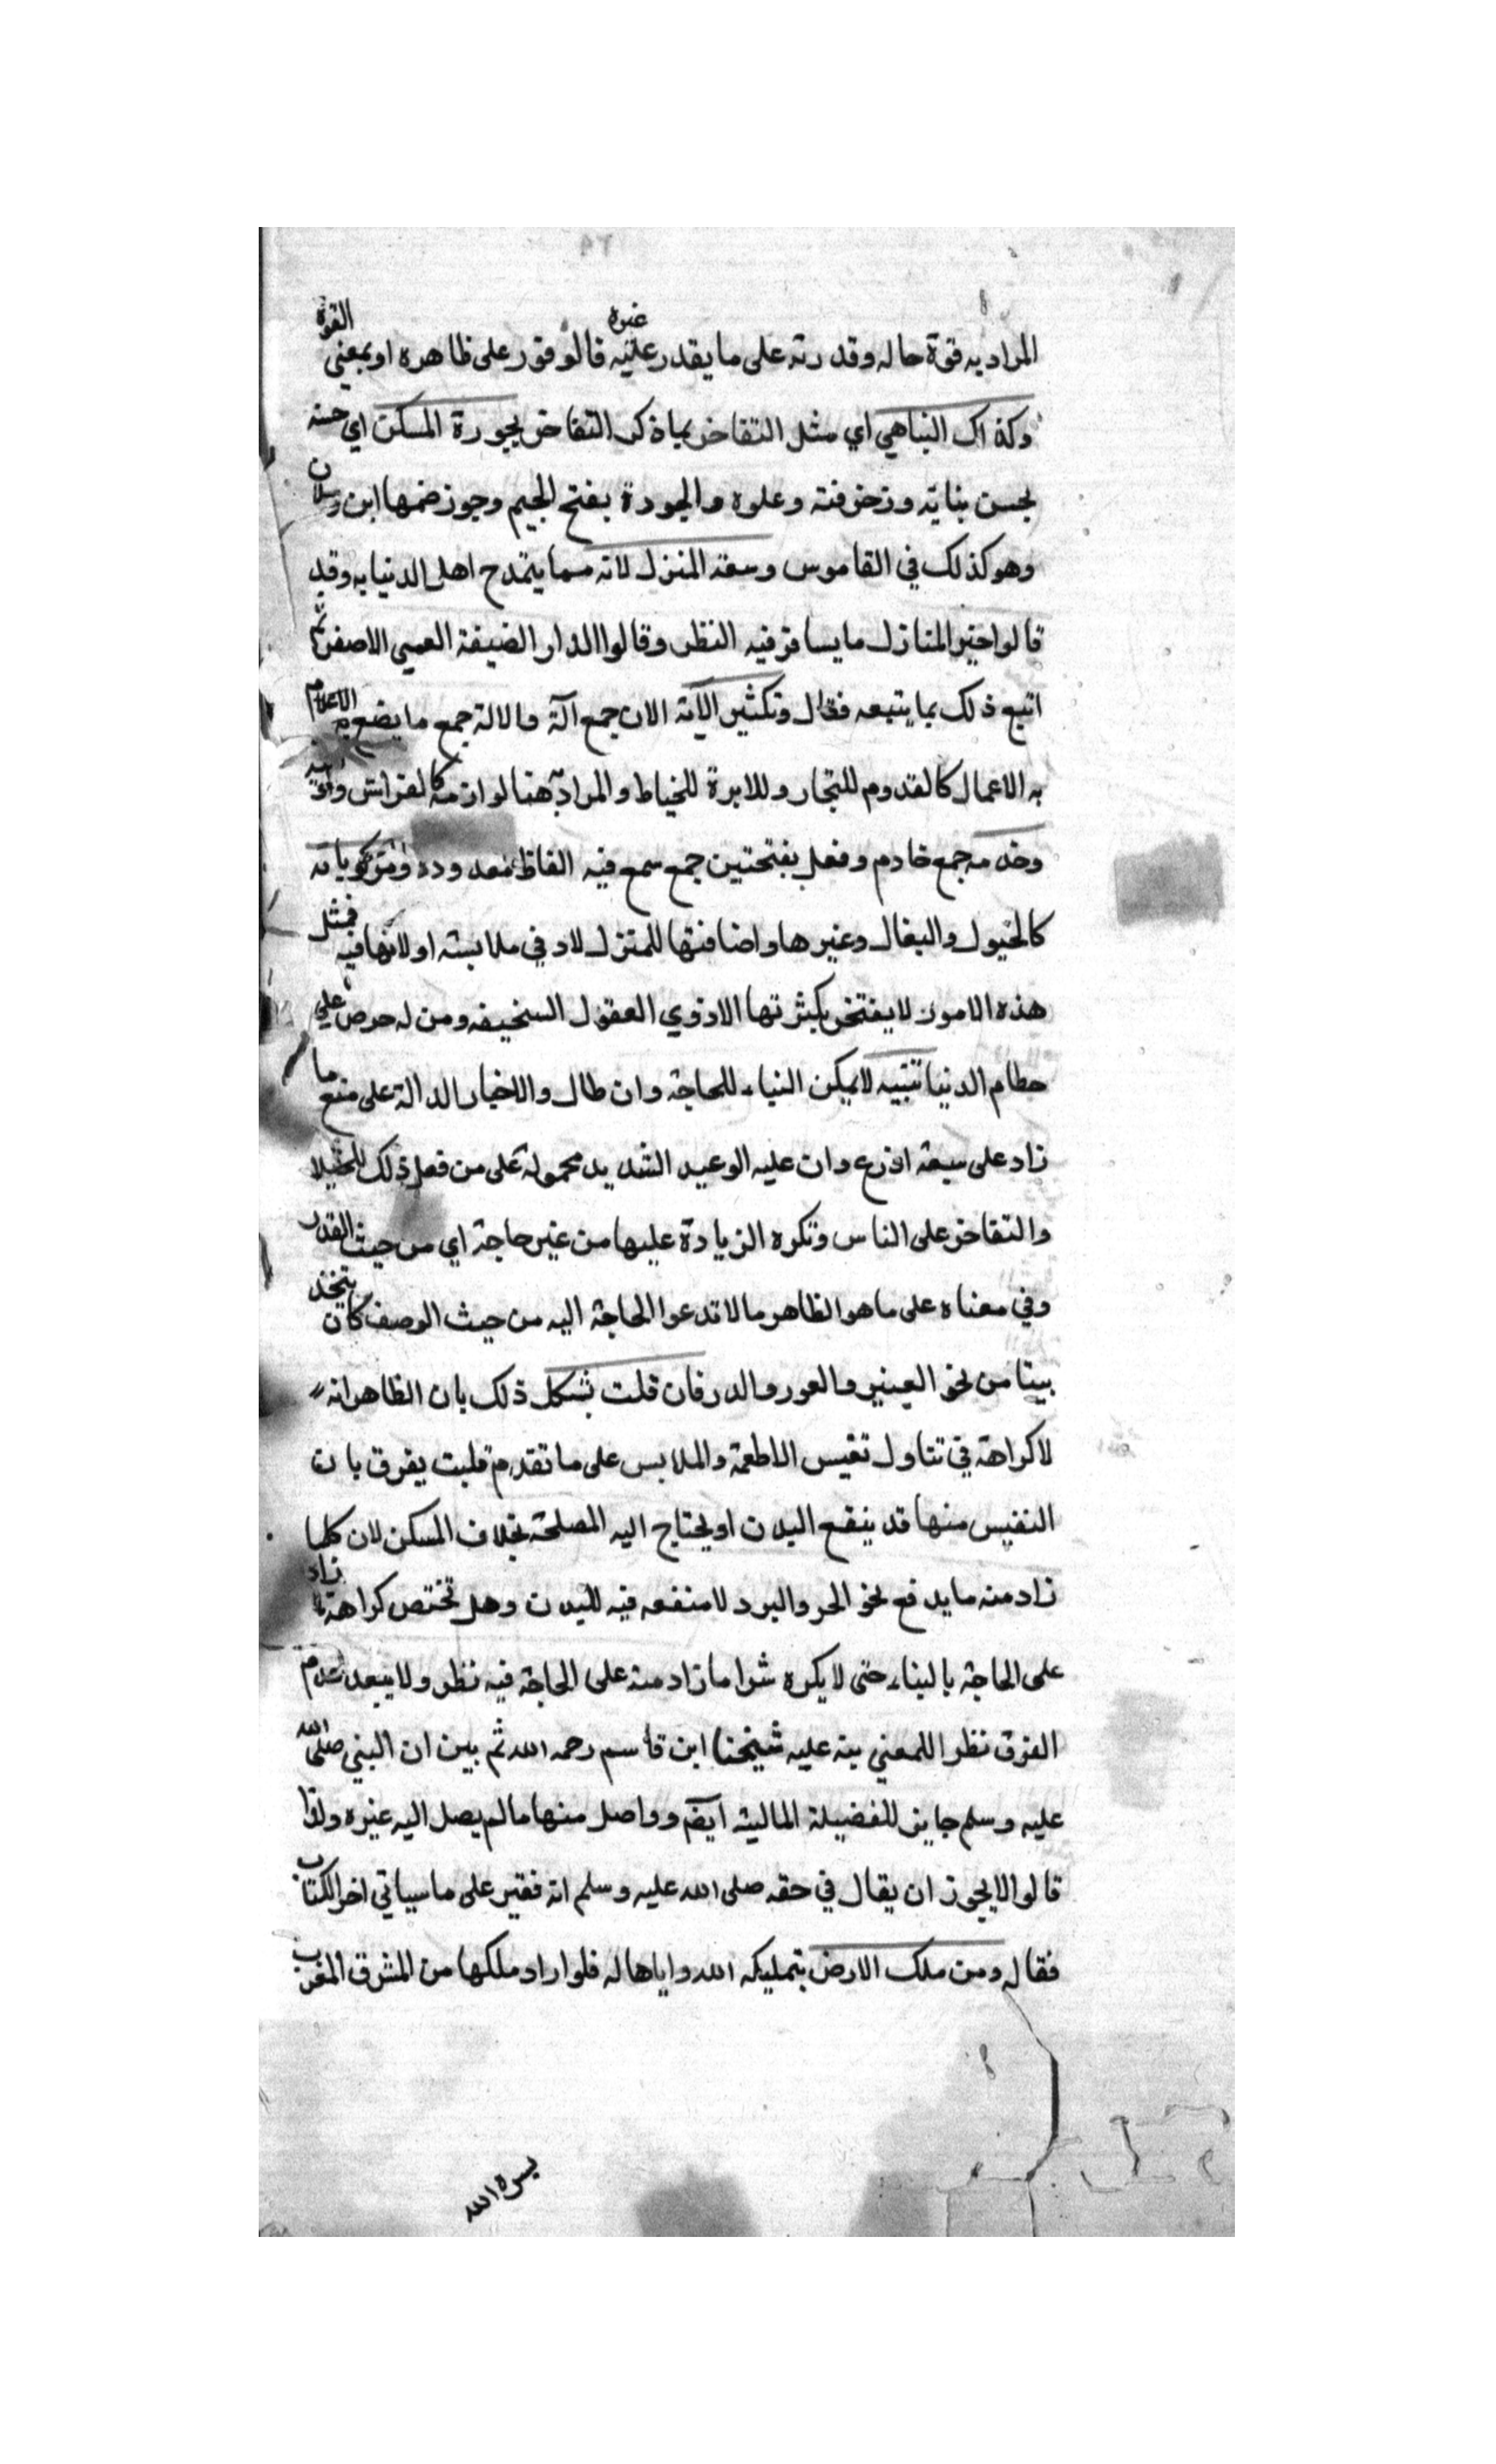 المراد به قوة حاله وقدرته على ما يقدر عليه غيره فالوفور على ظاهره او بمعني القوة
وكذاك التباهي اي مثل التفاخر بما ذكر التفاخر بجودة المسكن اي حسنه
بحسن بنايه وزخرفته وعلوه والجودة بفتح الجيم وجوز ضمها ابن رسلان
وهو كذلك في القاموس وسعة المنزل لانه مما يتمدح اهل الدنيا به وقد
قالوا خير المنازل ما يسافر فيه النظر وقالوا الدار الضيقة العمى الاصغر ثم
اتبع ذلك بما يتبعه فقال وتكثير الآته الان جمع آلة والالة جمع ما يضع به
به الاعمال كالقدوم للنجار وللابرة للخياط والمراد هنا لوازمه كالفراش
وخدمه جمع خادم وفعل بفتحتين جمع سمع فيه الفاظ معدوده ومركوباته
كالخيول والبغال وغيرها واضافتها للمنزل لادني ملابسته او لانها فيه فمثل
هذه الامور لا يفتخر بكثرتها الا ذوي العقول السخيفه ومن له حرص علي
حطام الدنيا تنبيه لا يمكن البناء للحاجة وان طال والاخبار الدالة على منع ما
زاد على سبعة اذرع وان عليه الوعيد الشديد محمولة على من فعل ذلك للخيلا
والتفاخر على الناس وتكره الزيادة عليها من غير حاجة اي من حيث القدر
وفي معناه على ما هو الظاهر ما لا تدعوا الحاجة اليه من حيث الوصف كان يتخذ
بيتا من نحو العنبر والعود والدر فان قلت يشكل ذلك بان الظاهر انه
لا كراهة في تناول نفيس الاطعمة والملابس على ما تقدم قلت يفرق بان
النفيس منها قد ينفع البدن او يحتاج اليه المصلحة بخلاف المسكن لان كلما
زاد منه ما يدفع نحو الحر والبرد لا منفعه فيه للبدن وهل تختص كراهة ما زاد
على الحاجة بالبناء حتى لا يكره شرا ما زاد منه على الحاجة فيه نظر ولا يبعد عدم
الفرق نظرا للمعني نبه عليه شيخنا ابن قاسم رحمه الله ثم بين ان النبي صلى الله
عليه وسلم حايز للفضيلة المالية ايضا وواصل منها ما لم يصل اليه غيره ولذا
قالوا لا يجوز ان يقال في حقه صلى الله عليه وسلم انه فقير على ما سياتي اخر الكتاب
فقال ومن ملك الارض بتمليكه الله واياها له فلو اراد ملكها من المشرق المغرب